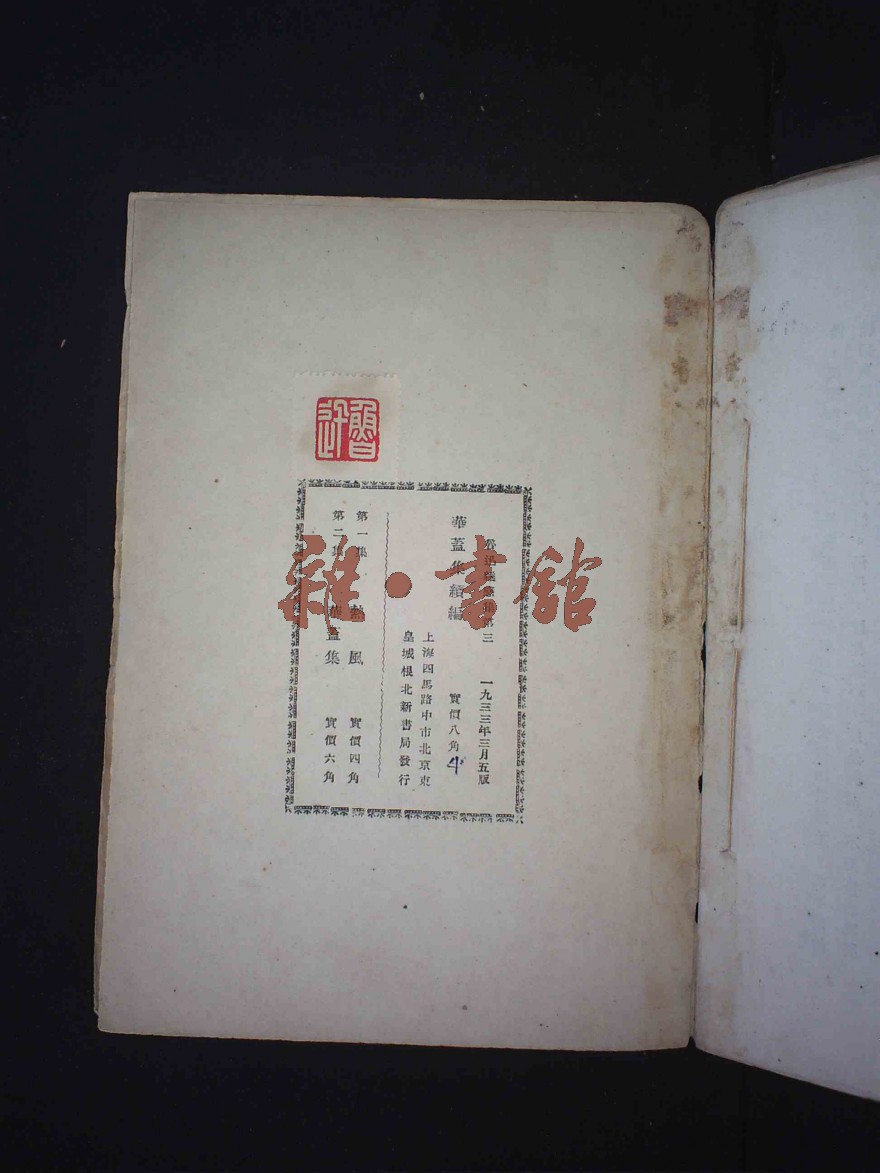 魯迅
魯迅雜感集第三 一九三三年三月五版
華蓋集續編 實價八角半
上海四馬路中市北京東
皇城根北新書局發行
第一集 熱風 實價四角
第二集 華蓋集 實價六角
雜·書館